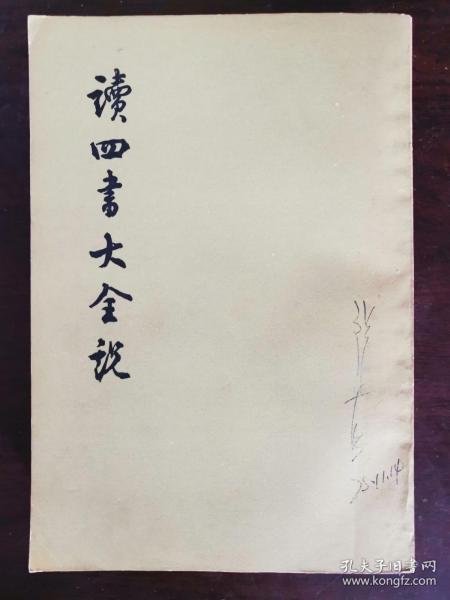 讀四書大全說
75.11.14
孔夫子旧书网
www.kongfz.com